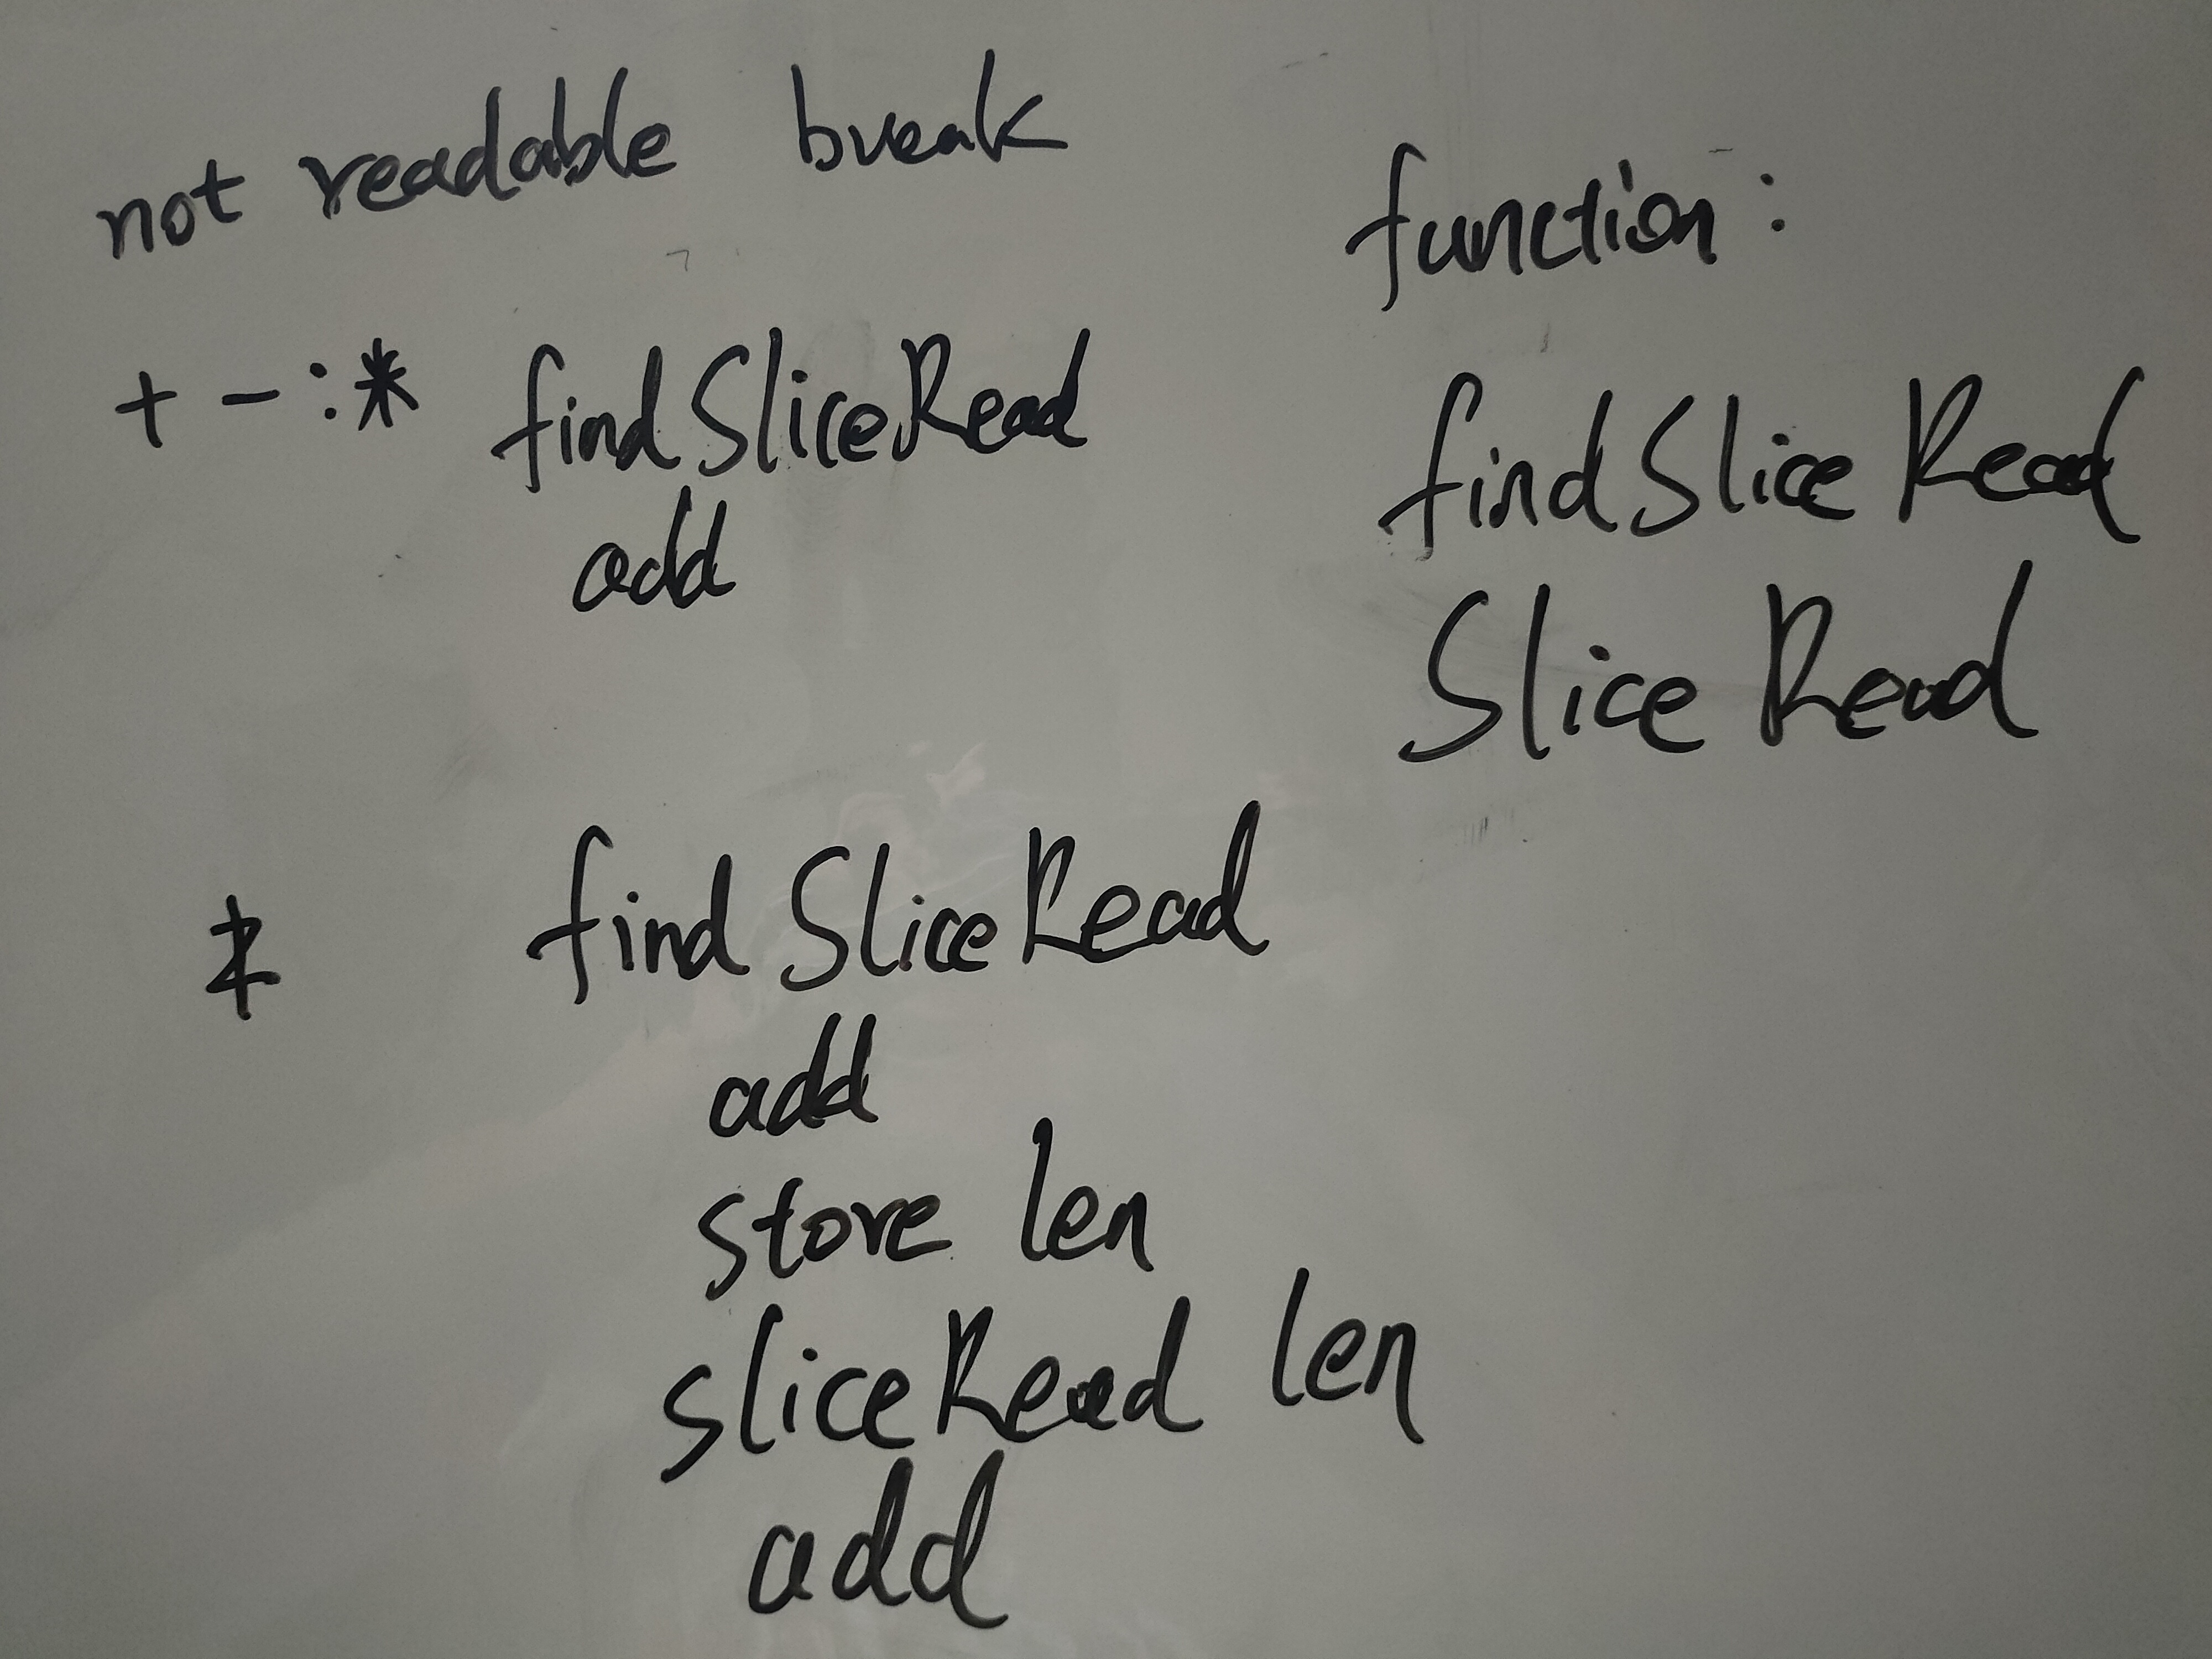 not readable break
+ - : * findSliceRead
add
$ findSliceRead
add
store len
sliceRead len
add
function :
findSliceRead
SliceRead